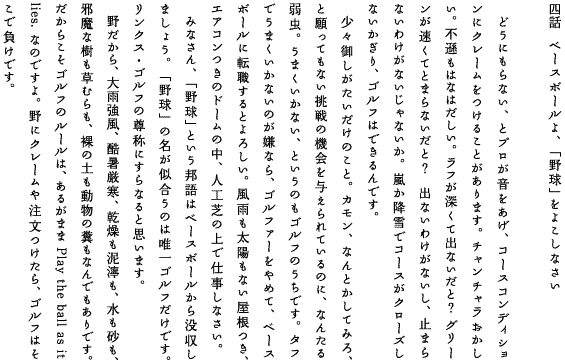 四話　ベースボールよ、「野球」をよこしなさい
　どうにもらない、とプロが音をあげ、コースコンディショ
ンにクレームをつけることがあります。チャンチャラおかし
い。不遜もはなはだしい。ラフが深くて出ないだと？　グリー
ンが速くてとまらないだと？　出ないわけがないし、止まら
ないわけがないじゃないか。嵐か降雪でコースがクローズし
ないかぎり、ゴルフはできるんです。
　少々御しがたいだけのこと。カモン、なんとかしてみろ、
と願ってもない挑戦の機会を与えられているのに、なんたる
弱虫。うまくいかない、というのもゴルフのうちです。タフ
でうまくいかないのが嫌なら、ゴルファーをやめて、ベース
ボールに転職するとよろしい。風雨も太陽もない屋根つき、
エアコンつきのドームの中、人工芝の上で仕事しなさい。
　みなさん、「野球」という邦語はベースボールから没収し
ましょう。「野球」の名が似合うのは唯一ゴルフだけです。
リンクス・ゴルフの尊称にすらなると思います。
　野だから、大雨強風、酷暑厳寒、乾燥も泥濘も、水も砂も、
邪魔な樹も草むらも、裸の土も動物の糞もなんでもありです。
だからこそゴルフのルールは、あるがまま Play the ball as it
lies. なのですよ。野にクレームや注文つけたら、ゴルフはそ
こで負けです。